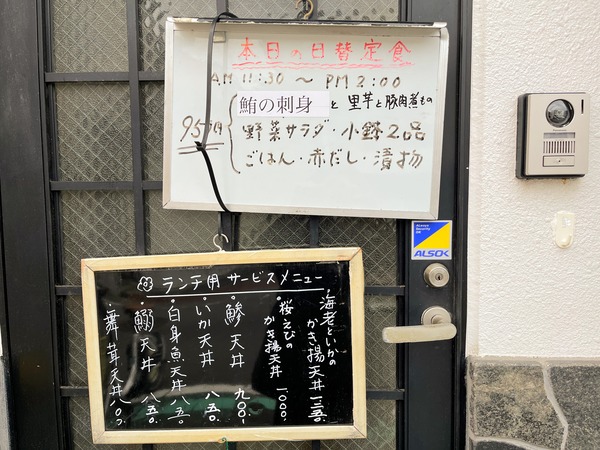 本日の日替定食
AM 11:30 ～ PM 2:00
鮪の刺身 と 里芋と豚肉煮もの
950円
野菜サラダ・小鉢2品
ごはん・赤だし・漬物
ALSOK
ランチ用 サービスメニュー
・海老といかの
かき揚天丼 一三五〇
・桜えびの
かき揚天丼 一〇〇〇
・鯵天丼 九〇〇
・いか天丼 八五〇
・白身魚天丼 八五〇
・鰯天丼 八五〇
・舞茸天丼 八〇〇